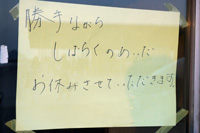 勝手ながら
しばらくのあいだ
お休みさせていただきます。